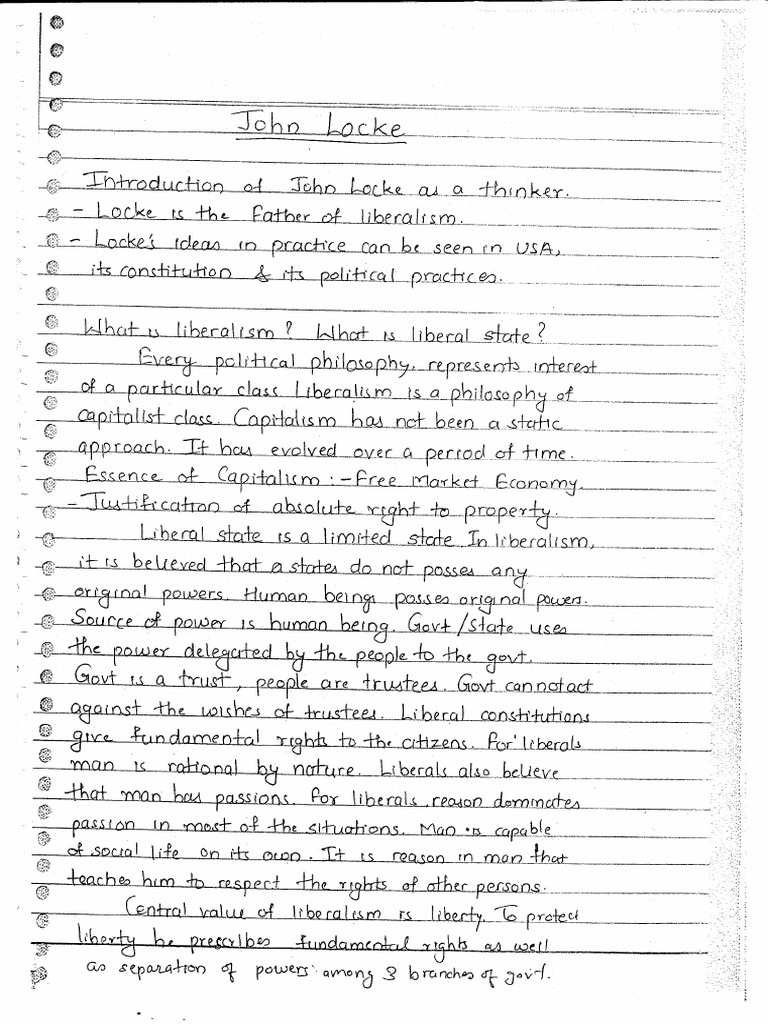 John Locke
Introduction of John Locke as a thinker.
- Locke is the Father of liberalism.
- Locke's ideas in practice can be seen in USA,
its constitution & its political practices.
What is liberalism? What is liberal state?
Every political philosophy, represents interest
of a particular class Liberalism is a philosophy of
capitalist class. Capitalism has not been a static
approach. It has evolved over a period of time.
Essence of Capitalism :- Free Market Economy.
- Justification of absolute right to property.
Liberal state is a limited state In liberalism,
it is believed that a states do not posses any
original powers. Human beings posses original powers.
Source of power is human being. Govt/State uses
the power delegated by the people to the govt.
Govt is a trust, people are trustees. Govt cannot act
against the wishes of trustees. Liberal constitutions
give fundamental rights to the citizens. For liberals
man is rational by nature. Liberals also believe
that man has passions. For liberals, reason dominates
passion in most of the situations. Man is capable
of social life on its own. It is reason in man that
teaches him to respect the rights of other persons.
Central value of liberalism is liberty. To protect
liberty he prescribes fundamental rights as well
as separation of powers among 3 branches of govt.